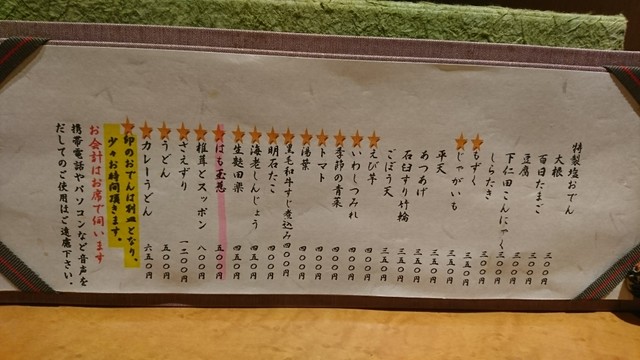 特製塩おでん
大根 三〇〇円
百日たまご 三〇〇円
豆腐 三〇〇円
下仁田こんにゃく 三〇〇円
しらたき 三〇〇円
★もずく 三五〇円
★じゃがいも 三五〇円
平天 三五〇円
あつあげ 三五〇円
石臼すり竹輪 三五〇円
ごぼう天 三五〇円
★えび芋 四〇〇円
★いわしつみれ 四〇〇円
★季節の青菜 四〇〇円
★トマト 四〇〇円
★湯葉 四〇〇円
★黒毛和牛すじ煮込み 四〇〇円
★明石たこ 四〇〇円
★海老しんじょう 四五〇円
★生麩田楽 四五〇円
★はも玉葱 五〇〇円
★椎茸とスッポン 八〇〇円
★さえずり 一二〇〇円
★うどん 五〇〇円
★カレーうどん 六五〇円
★印のおでんは別皿となり、
少々お時間頂きます。
お会計はお席で伺います
携帯電話やパソコンなど音声を
だしてのご使用はご遠慮下さい。